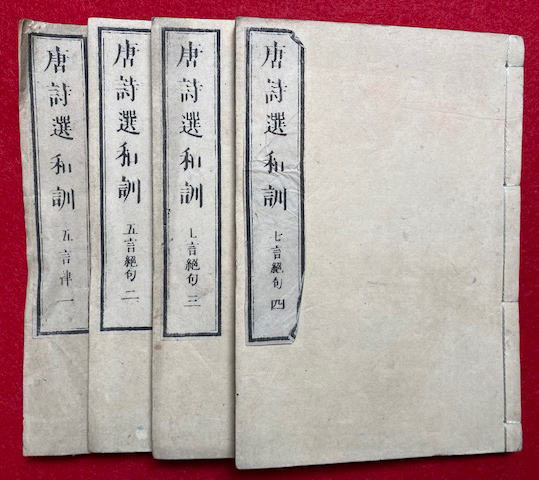 唐詩選和訓 五言律 一
唐詩選和訓 五言絕句 二
唐詩選和訓 七言絕句 三
唐詩選和訓 七言絕句 四